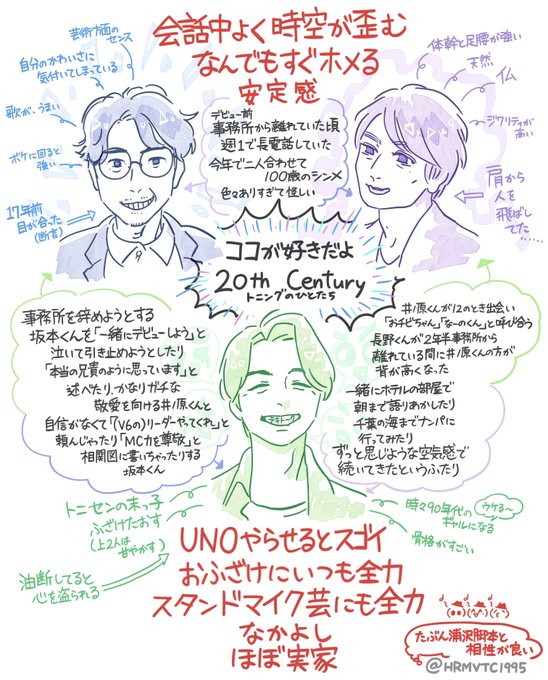 会話中よく時空が歪む
なんでもすぐホメる
安定感
芸術方面の
センス
自分のかわいさに
気付いてしまっている
歌が、うまい
ボケに回ると
強い
17年前
目が合った
(断言)
デビュー前
事務所から離れていた頃
週1で長電話していた
今年で二人合わせて
100歳のシンメ
色々ありすぎて怪しい
体幹と足腰が強い
天然
仏
ジワリティが
高い
肩から
人を
飛ばし
てた……
ココが好きだよ
20th Century
トニングのひとたち
事務所を辞めようとする
坂本くんを「一緒にデビューしよう」と
泣いて引き止めようとしたり
「本当の兄貴のように思っています」と
述べたり、かなりガチな
敬愛を向ける井ノ原くんと
自信がなくて「(V6の)リーダーやってくれ」と
頼んじゃったり「MC力を尊敬」と
相関図に書いちゃったりする
坂本くん
井ノ原くんが12のとき出会い
「おチビちゃん」「なーのくん」と呼び合う
長野くんが2年半事務所から
離れている間に井ノ原くんの方が
背が高くなった
一緒にホテルの部屋で
朝まで語りあかしたり
千葉の海までナンパに
行ってみたり
ずっと同じような空気感で
続いてきたというふたり
トニセンの末っ子
ふざけたおす
(上2人は
甘やかす)
油断してると
心を盗られる
時々90年代の
ギャルになる
ウケる〜
骨格がすごい
UNOやらせるとスゴイ
おふざけにいつも全力
スタンドマイク芸にも全力
なかよし
ほぼ実家
たぶん浦沢脚本と
相性が良い
@HRMVTC1995